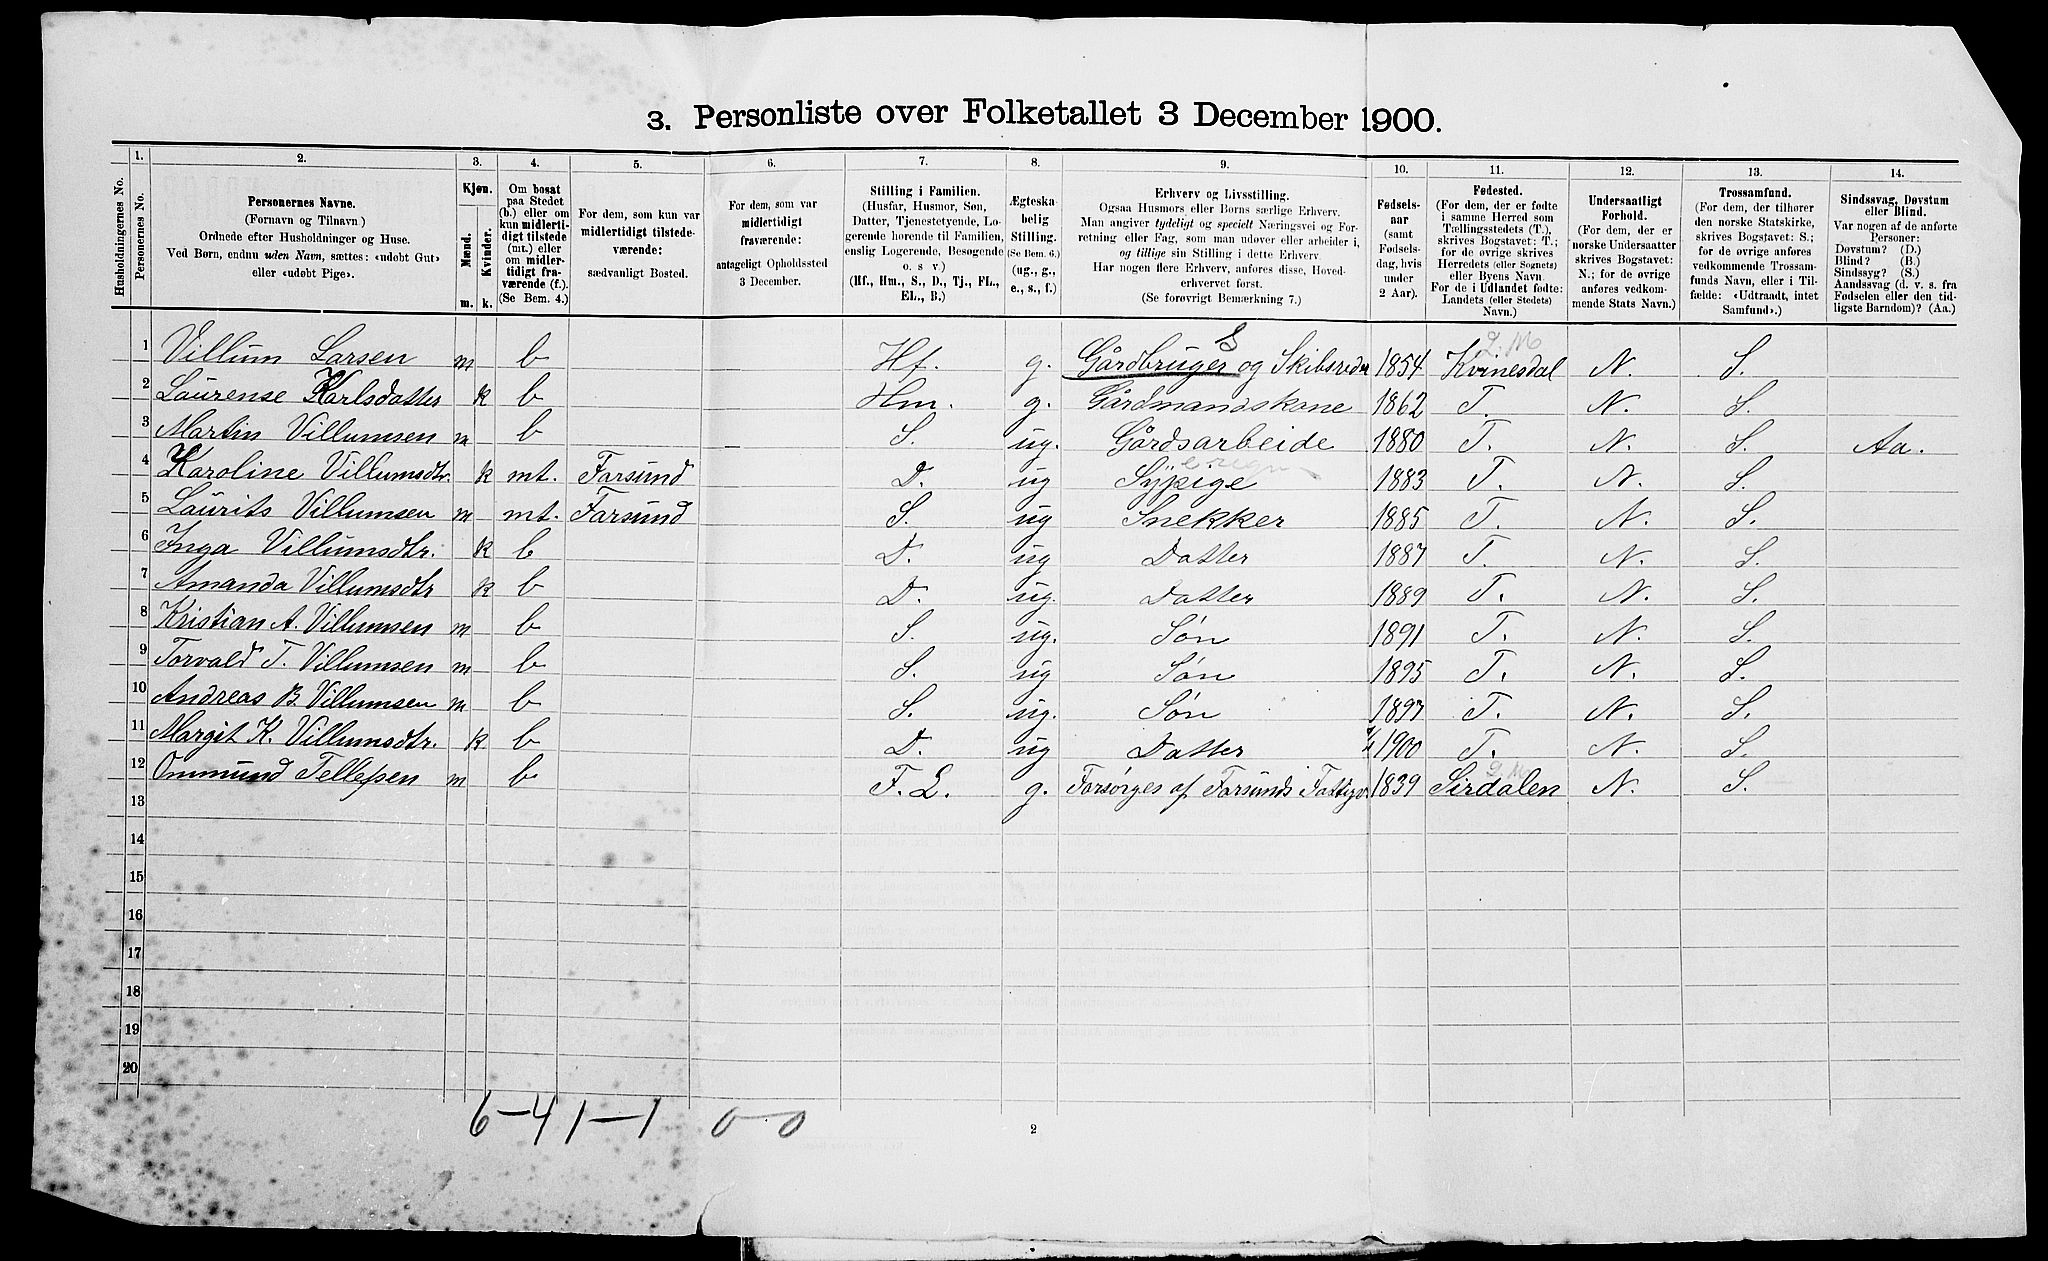 3. Personliste over Folketallet 3 December 1900.
1. 2. 3. 4. 5. 6. 7. 8. 9. 10. 11. 12. 13. 14.
Husholdningernes No.
Personernes No.
Personernes Navne.
(Fornavn og Tilnavn)
Ordnede efter Husholdninger og Huse.
Ved Børn, endnu uden Navn, sættes: «udøbt Gut»
eller «udøbt Pige».
Kjøn.
Mænd. Kvinder.
m. k.
Om bosat
paa Stedet
(b.) eller om
kun midlerti-
digt tilstede
(mt.) eller
om midler-
tidigt fra-
værende (f.).
(Se Bem. 4.)
For dem, som kun var
midlertidigt tilstede-
værende:
sædvanligt Bosted.
For dem, som var
midlertidigt
fraværende:
antageligt Opholdssted
3 December.
Stilling i Familien.
(Husfar, Husmor, Søn,
Datter, Tjenestetyende, Lo-
gerende hørende til Familien,
enslig Logerende, Besøgende
o. s. v.)
(Hf., Hm., S., D., Tj., FL.,
EL., B.)
Ægteska-
belig
Stilling.
(Se Bem. 6.)
(ug., g.,
e., s., f.)
Erhverv og Livsstilling.
Ogsaa Husmors eller Børns særlige Erhverv.
Man angiver tydeligt og specielt Næringsvei og For-
retning eller Fag, som man udøver eller arbeider i,
og tillige sin Stilling i dette Erhverv.
Har nogen flere Erhverv, anføres disse, Hoved-
erhvervet først.
(Se forøvrigt Bemærkning 7.)
Fødsels-
aar
(samt
Fødsels-
dag, hvis
under
2 Aar).
Fødested.
(For dem, der er fødte
i samme Herred som
Tællingsstedets (T.),
skrives Bogstavet: T.;
for de øvrige skrives
Herredets (eller Sognets)
eller Byens Navn.
For de i Udlandet fødte:
Landets (eller Stedets)
Navn.)
Undersaatligt
Forhold.
(For dem, der er
norske Undersaatter
skrives Bogstavet:
N.; for de øvrige
anføres vedkom-
mende Stats Navn.)
Trossamfund.
(For dem, der tilhører
den norske Statskirke,
skrives Bogstavet: S.;
for de øvrige anføres
vedkommende Trossam-
funds Navn, eller i Til-
fælde: «Udtraadt, intet
Samfund».)
Sindssvag, Døvstum
eller Blind.
Var nogen af de anførte
Personer:
Døvstum? (D.)
Blind? (B.)
Sindssyg? (S.)
Aandssvag (d. v. s. fra
Fødselen eller den tid-
ligste Barndom)? (Aa.)
1 Villum Larsen m b Hf. g. Gårdbruger og Skibsreder 1854 Kvinesdal N. S.
2 Laurense Karlsdatter k b Hm. g. Gårdmandskone 1862 T. N. S.
3 Martin Villumsen m b S. ug. Gårdsarbeide 1880 T. N. S. Aa.
4 Karoline Villumsdtr. k mt. Farsund D. ug Sypige 1883 T. N. S.
5 Laurits Villumsen m mt. Farsund S. ug Snekker 1885 T. N. S.
6 Inga Villumsdtr. k b D. ug Datter 1887 T. N. S.
7 Amanda Villumsdtr k b D. ug. Datter 1889 T. N. S.
8 Kristian A. Villumsen m b S. ug. Søn 1891 T. N. S.
9 Torvald T. Villumsen m b S. ug Søn 1895 T. N. S.
10 Andreas B. Villumsen m b S. ug. Søn 1897 T. N. S.
11 Margit K. Villumsdtr. k b D. ug Datter 1900 T. N. S.
12 Ommund Tellefsen m b F. L. g. Forsørges af Farsunds Fattigv. 1839 Sirdalen N. S.
13
14
15
16
17
18
19
20
6–4 1–1 0–0
2